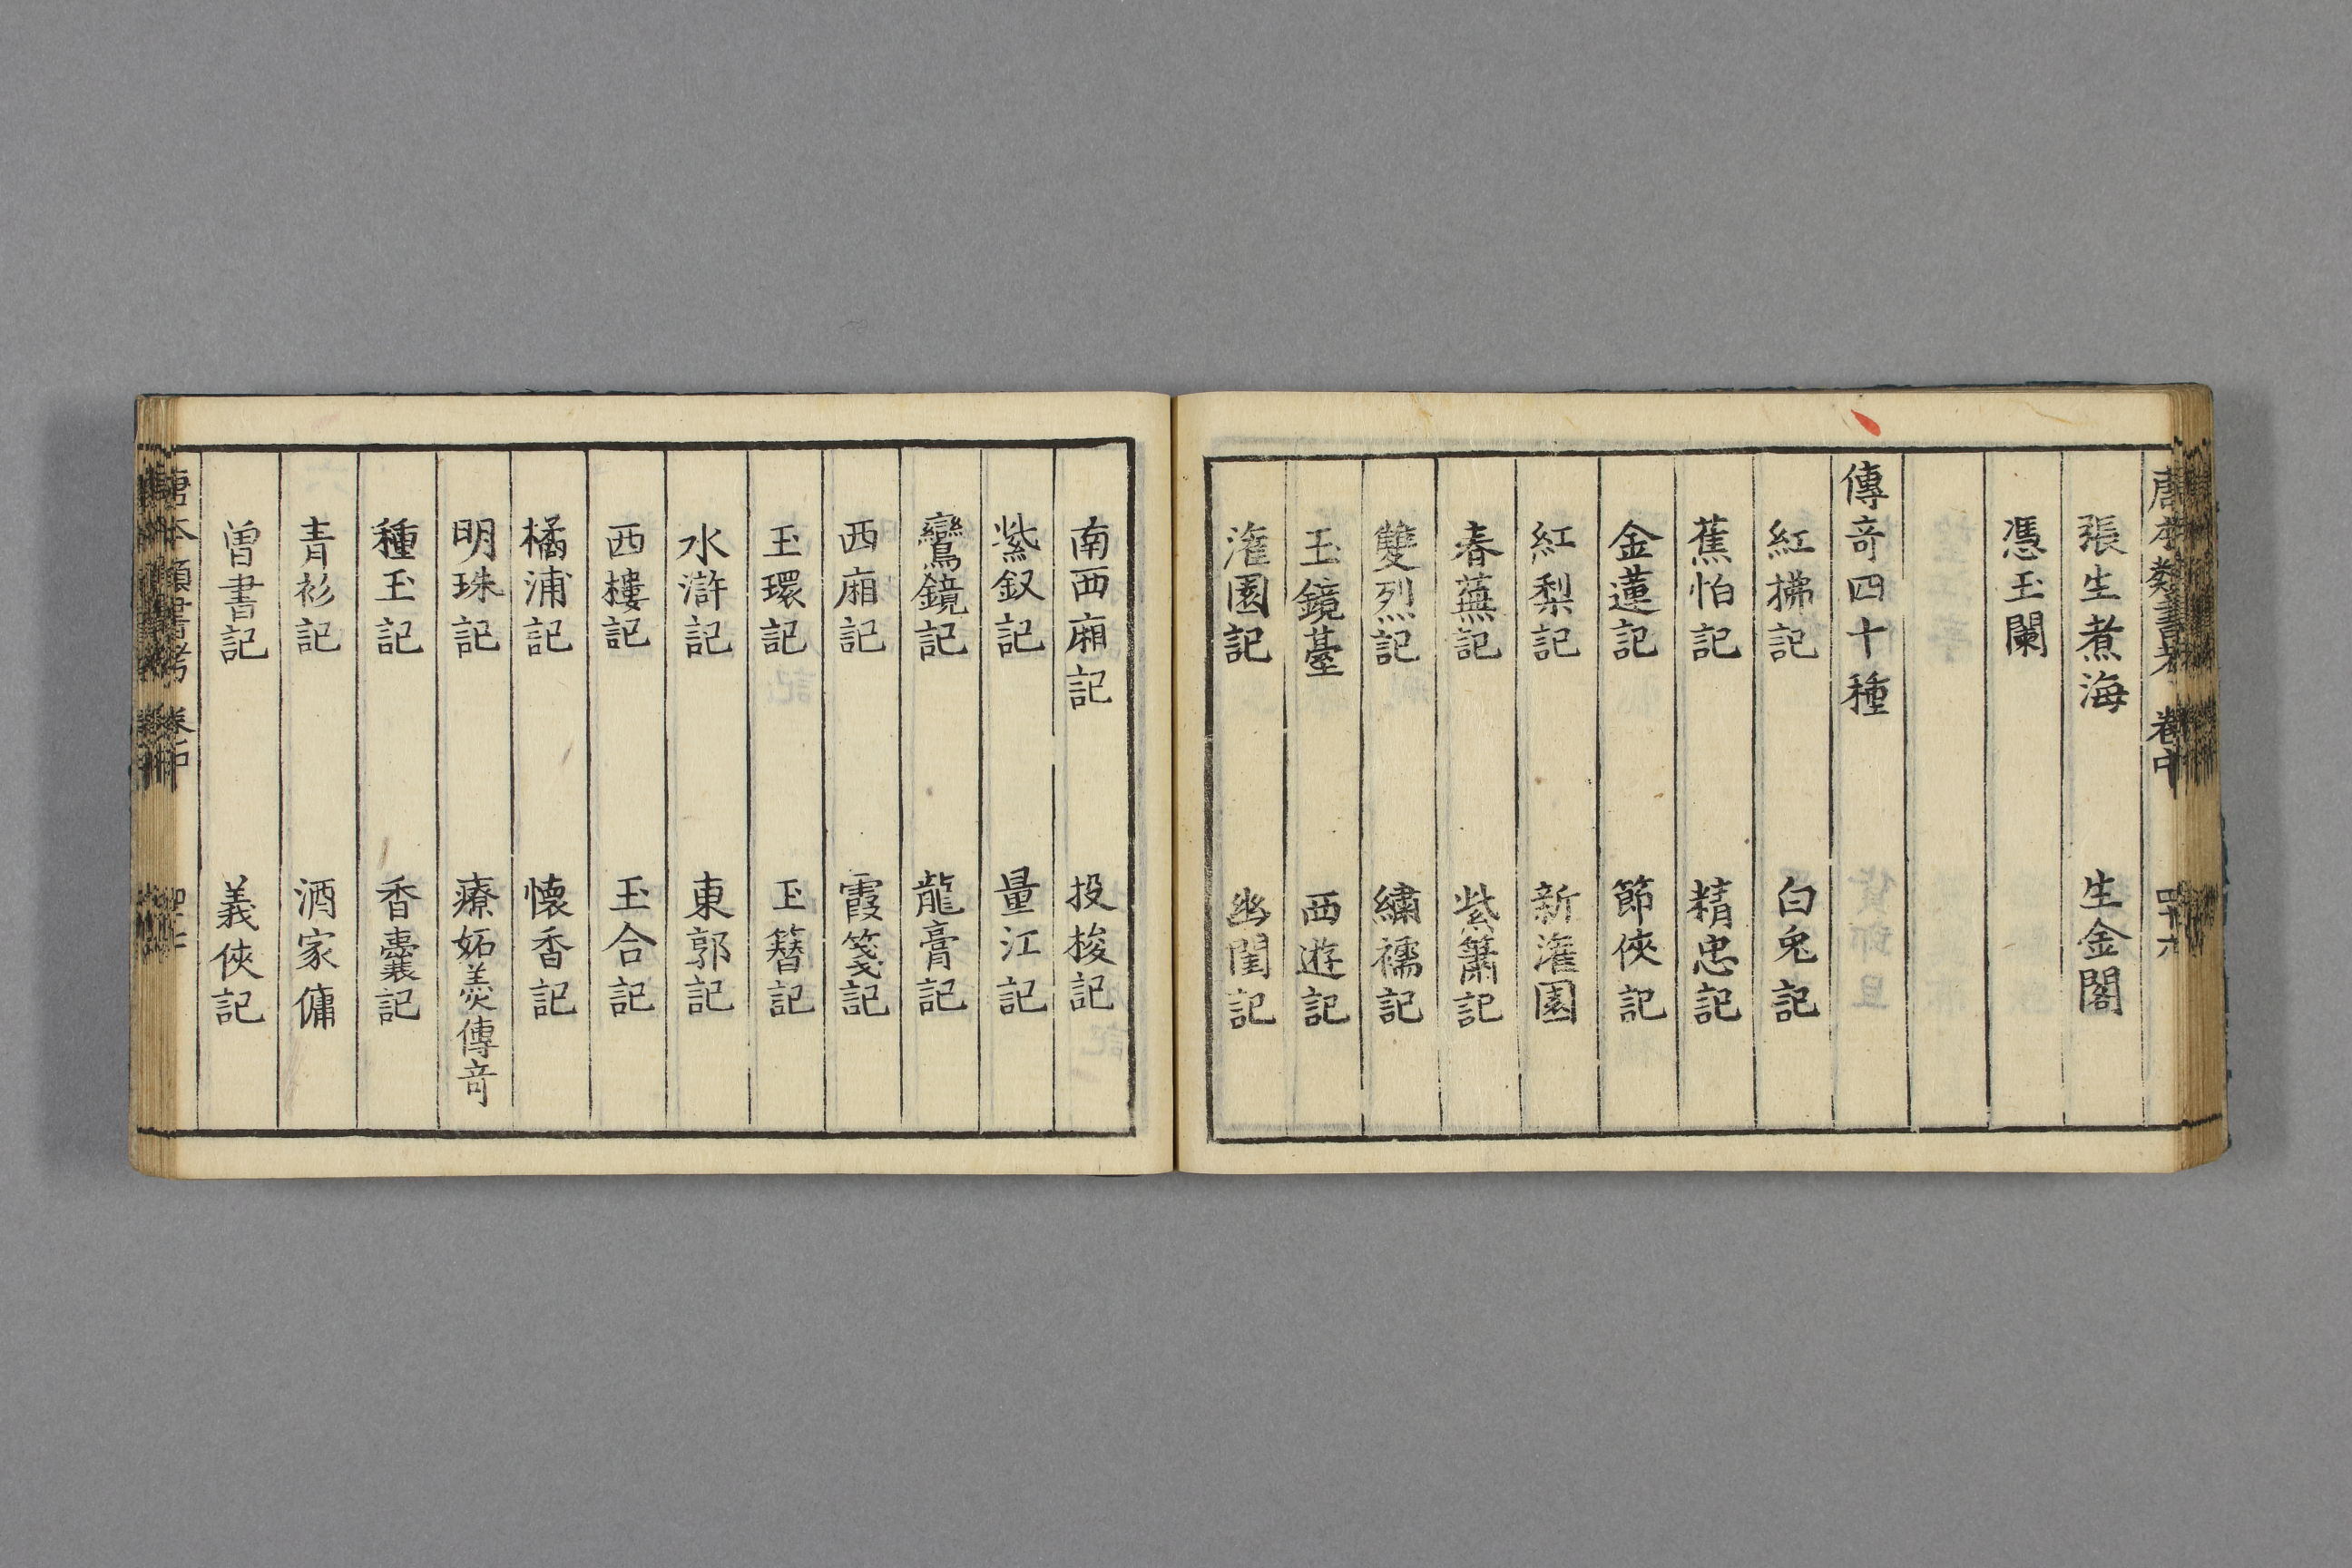 唐本類書考 卷中 四十六
張生煮海 生金閣
馮玉闌
傳奇四十種
紅拂記 白兎記
蕉怕記 精忠記
金蓮記 節俠記
紅梨記 新灌園
春蕪記 紫簫記
雙烈記 繡襦記
玉鏡臺 西遊記
灌園記 幽閨記
南西廂記 投梭記
紫釵記 量江記
鸞鏡記 龍膏記
西廂記 霞箋記
玉環記 玉簪記
水滸記 東郭記
西樓記 玉合記
橘浦記 懷香記
明珠記 療妬羨傳奇
種玉記 香囊記
青衫記 酒家傭
曾書記 義俠記
唐本類書考 卷中